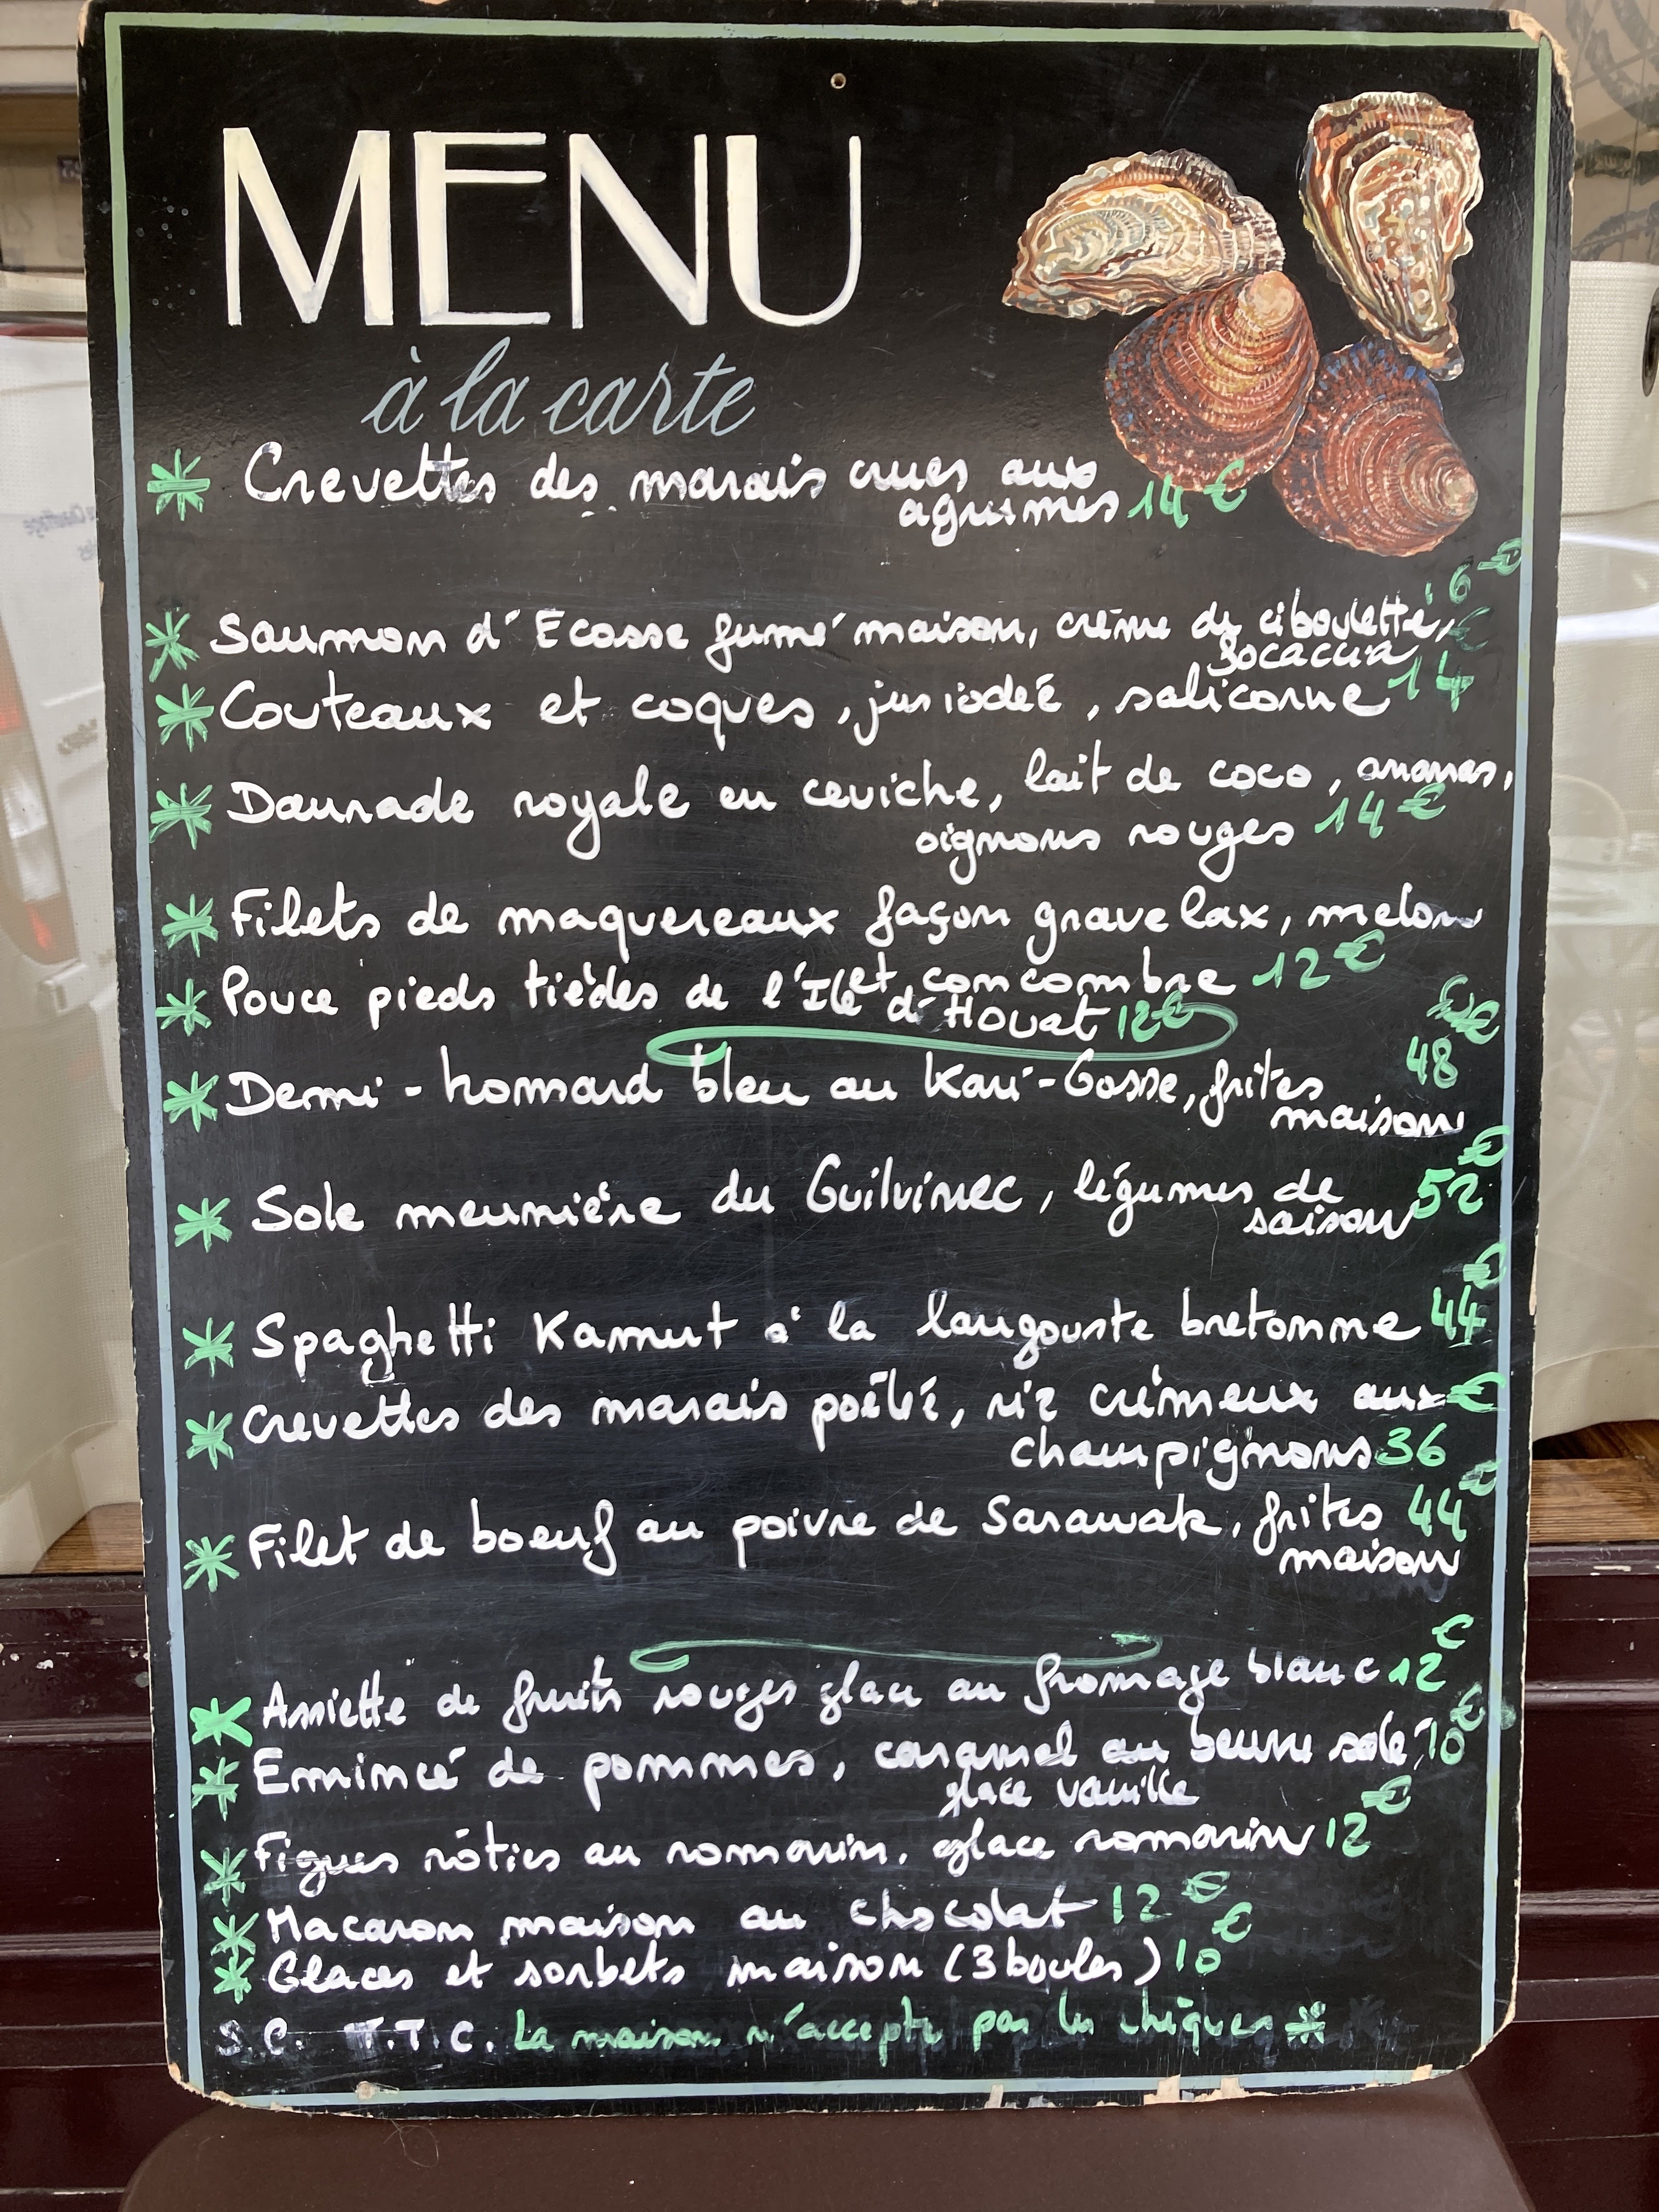 MENU
à la carte
* Crevettes des marais crues aux
agrumes 14 €
* Saumon d'Ecosse fumé maison, crème de ciboulette, 16 €
focaccia
* Couteaux et coques, jus iodée, salicorne 14 €
* Daurade royale en ceviche, lait de coco, ananas,
oignons rouges 14 €
* Filets de maquereaux façon gravelax, melon
et concombre 12 €
* Pouce pieds tièdes de l'Ile
d'Houat 12 €
* Demi-homard bleu au Kari-Gosse, frites 48 €
maison
* Sole meunière du Guilvinec, légumes de
saison 52 €
* Spaghetti Kamut à la langouste bretonne 44 €
* Crevettes des marais poêlé, riz crémeux aux
champignons 36 €
* Filet de boeuf au poivre de Sarawak, frites 44 €
maison
* Assiette de fruits rouges glace au fromage blanc 12 €
* Emincé de pommes, caramel au beurre salé, 10 €
glace vanille
* Figues rôties au romarin, glace romarin 12 €
* Macaron maison au chocolat 12 €
* Glaces et sorbets maison (3 boules) 10 €
S.C. T.T.C. La maison n'accepte pas les chèques *